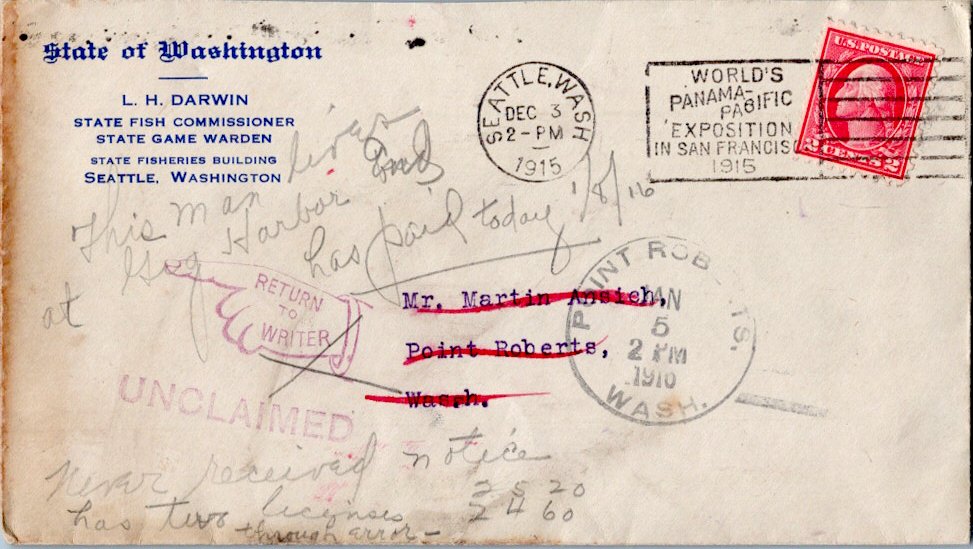 State of Washington
L. H. DARWIN
STATE FISH COMMISSIONER
STATE GAME WARDEN
STATE FISHERIES BUILDING
SEATTLE, WASHINGTON
SEATTLE, WASH
DEC 3
2-PM
1915
WORLD'S
PANAMA-
PACIFIC
EXPOSITION
IN SAN FRANCISC
1915
U.S. POSTAGE
2 CENTS 2
This man lives
at Gig Harbor and
has paid today 1/8/16
RETURN
TO
WRITER
UNCLAIMED
Mr. Martin Ansich,
Point Roberts,
Wash.
POINT ROB TS.
JAN
5
2 PM
1916
WASH.
Never received notice
has two licenses
through error-
2520
2460